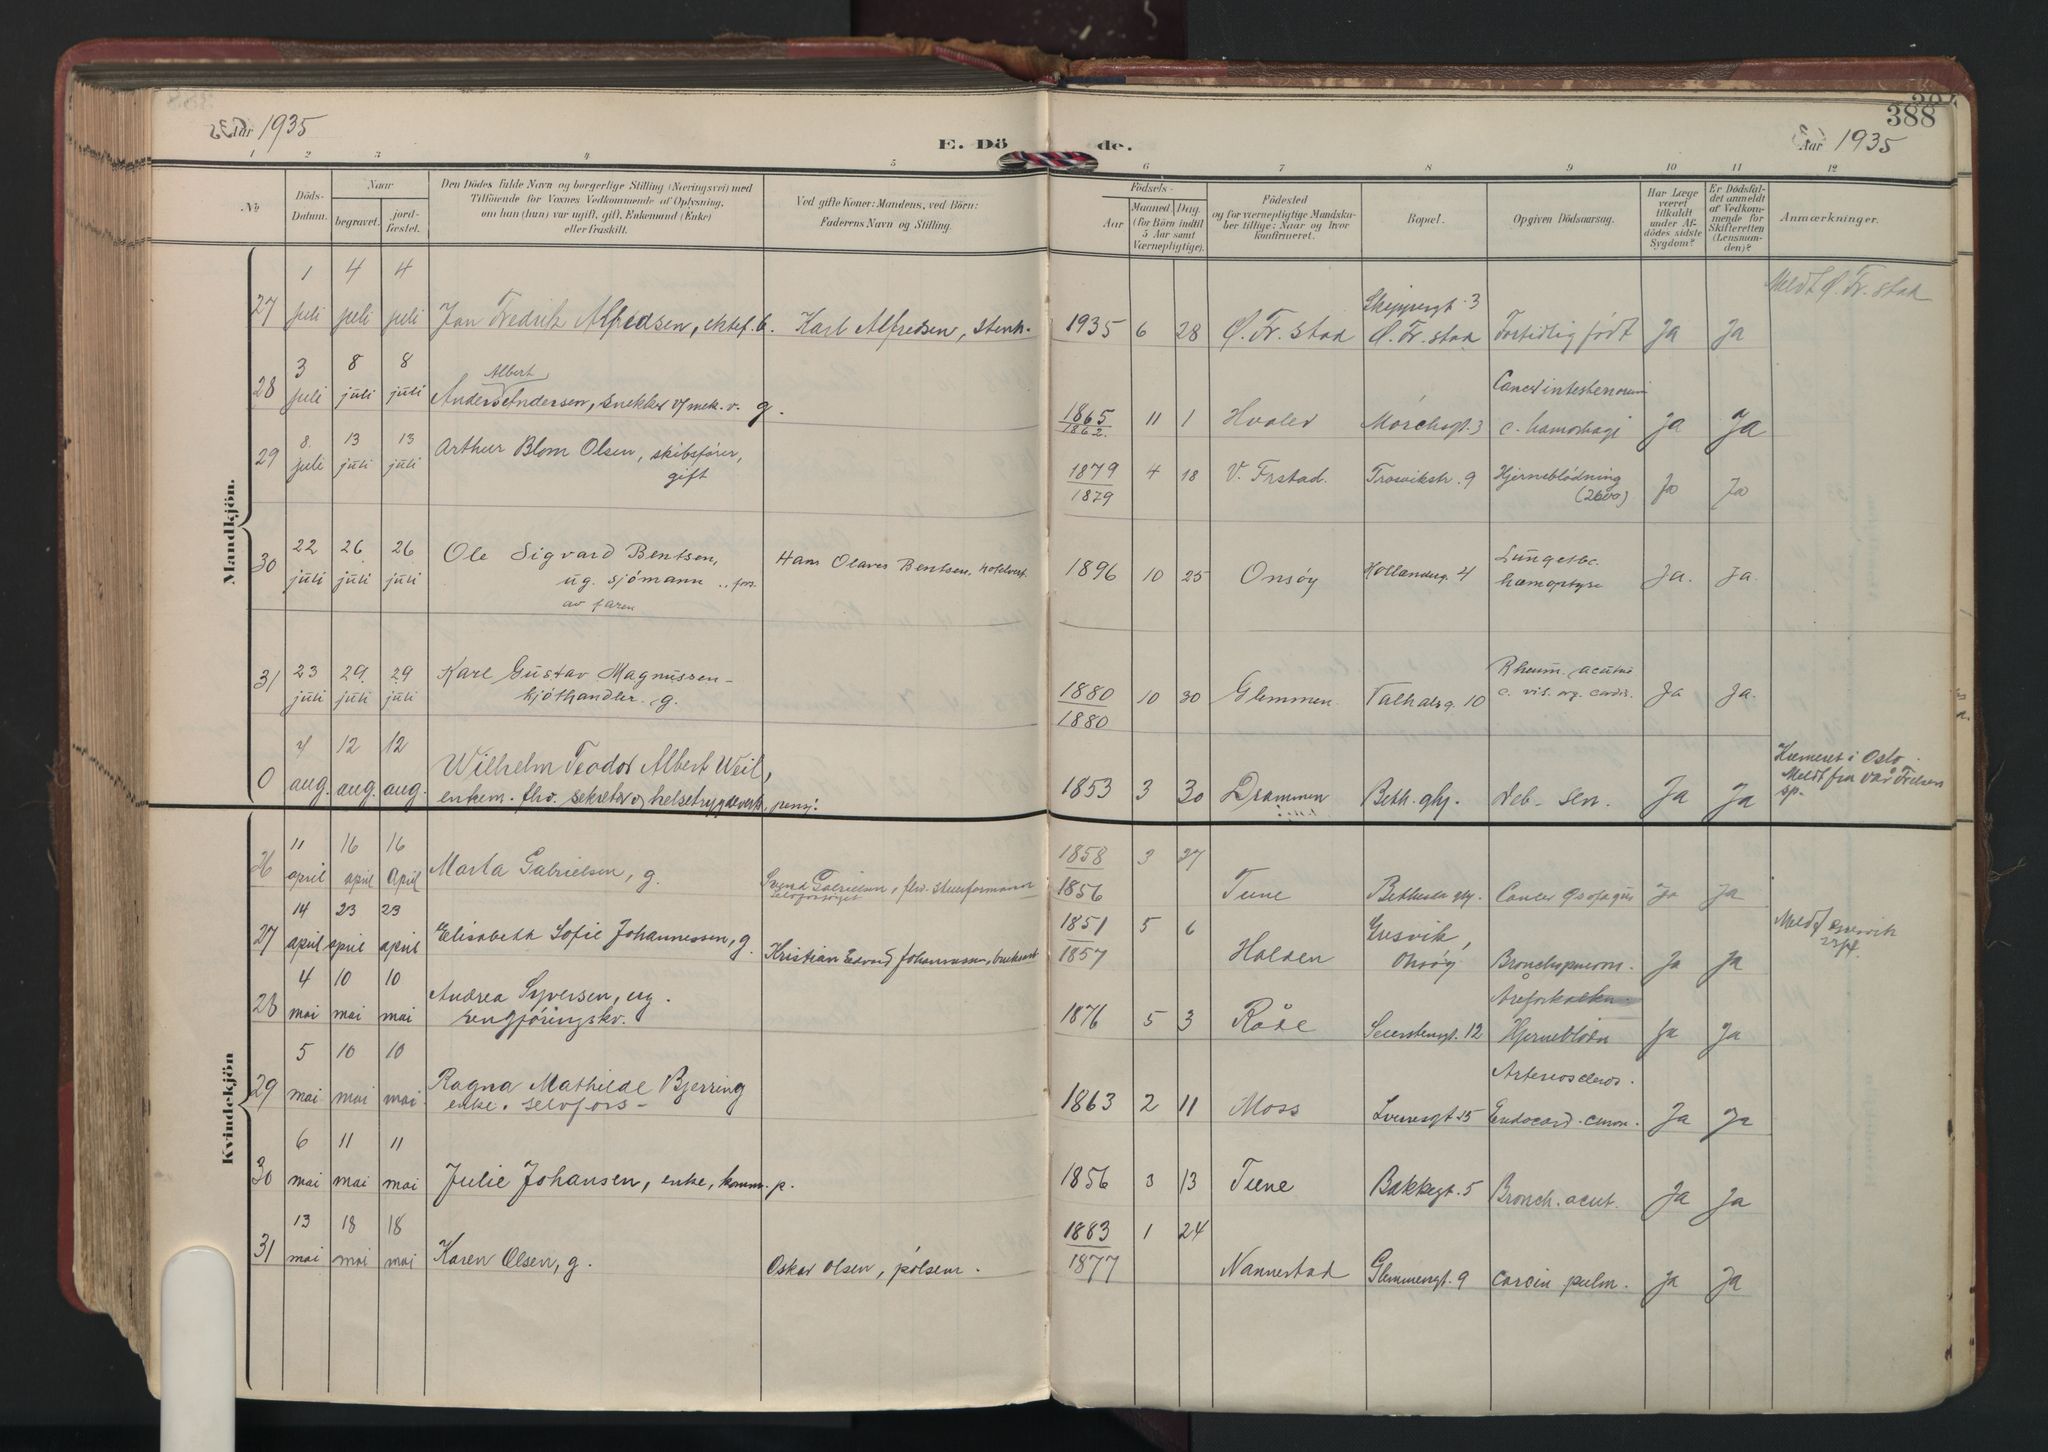 Aar 1935
E. Dö
de.
388
Aar 1935
1 2 3 4 5 6 7 8 9 10 11 12
No
Döds-Datum.
Naar
begravet.
jord-fæstet.
Den Dödes fulde Navn og borgerlige Stilling (Næringsvei) med
Tilföiende for Voxnes Vedkommende af Oplysning,
om han (hun) var ugift, gift, Enkemand (Enke)
eller fraskilt.
Ved gifte Koner: Mandens, ved Börn:
Faderens Navn og Stilling.
Födsels-
Aar
Maaned. Dag.
(for Börn indtil
5 Aar samt
Værnepligtige).
Födested
og for værnepligtige Mandska-
ber tillige: Naar og hvor
konfirmeret.
Bopæl.
Opgiven Dödsaarsag.
Har Læge
været
tilkaldt
under Af-
dödes sidste
Sygdom?
Er Dödsfal-
det anmeldt
af Vedkom-
mende for
Skifteretten
(Lensman-
den)?
Anmærkninger.
Mandkjön.
1 4 4 Skippergt. 3 Meldt Ø. Fr. stad
27 juli juli juli Jan Fredrik Alfredsen, ektef. b. Karl Alfredsen, stenh. 1935 6 28 Ø. Fr. stad Ø. Fr. stad Fortidlig født Ja Ja
3 8 8 Albert
28 juli juli juli Anders Andersen, snekker v/mek. v. g. 1865 11 1 Hvaler Mörchsgt. 3 c. hæmorhagi Ja Ja
1862.
8. 13 13 Arthur Blom Olsen, skibsfører,
29 juli juli juli gift 1879 4 18 V. Frstad. Trosvikstr. 9 Hjerneblödning Ja Ja
1879
22 26 26 Ole Sigvard Bentsen, Hans Olaves Bentsen, Lungetbc.
30 juli juli juli ug. sjömann 1896 10 25 Onsöy Hollenderg. 4 hæmoptyse Ja. Ja.
av faren
23 29. 29 Karl Gustav Magnussen Rheum. acutus
31 juli juli juli kjöthandler. g. 1880 10 30 Glemmen c. vis. org. cordis. Ja Ja.
1880
4 12 12 Wilhelm Teodor Albert Weil, Kremert i Oslo.
0 aug. aug. aug. enkem. fhv. sekretær v/ helsetrygdeverk, pensj. 1853 3 30 Drammen Beth. ghj. deb. sen. Ja Ja Meldt fra Vår Frelsers
sp.
Kvindekjön
11 16 16 1858 3 27
26 april april april Marta Gabrielsen, g. Svend Gabrielsen, fhv. stuerformann 1856 Tune Bethesda ghj. Cancer øsofagus Ja Ja
14 23 23 1851 5 6 Gresvik, Meldt Gresvik
27 april april april Elisabeth Sofie Johannessen, g. Kristian Edvard Johannessen, 1857 Halden Onsöy Bronchopneum. Ja Ja
4 10 10 Andrea Syversen, ug. Åreforkalkn.
28 mai mai mai rengjöringskv. 1876 5 3 Råde Seierstengt. 12 Hjerneblödn Ja Ja
5 10 10 Ragna Mathilde Bjerring Arterioscleros.
29 mai mai mai enke. selvfors 1863 2 11 Moss Endocard. cron. Ja Ja
6 11 11
30 mai mai mai Julie Johansen, enke, komm. p. 1856 3 13 Tune Bakkegt. 5 Bronch. acut. Ja Ja
13 18 18 1883 1 24
31 mai mai mai Karen Olsen, g. Oskar Olsen, pölsem. 1877 Nannestad Glemmengt. 9 Carcin pulm. Ja Ja